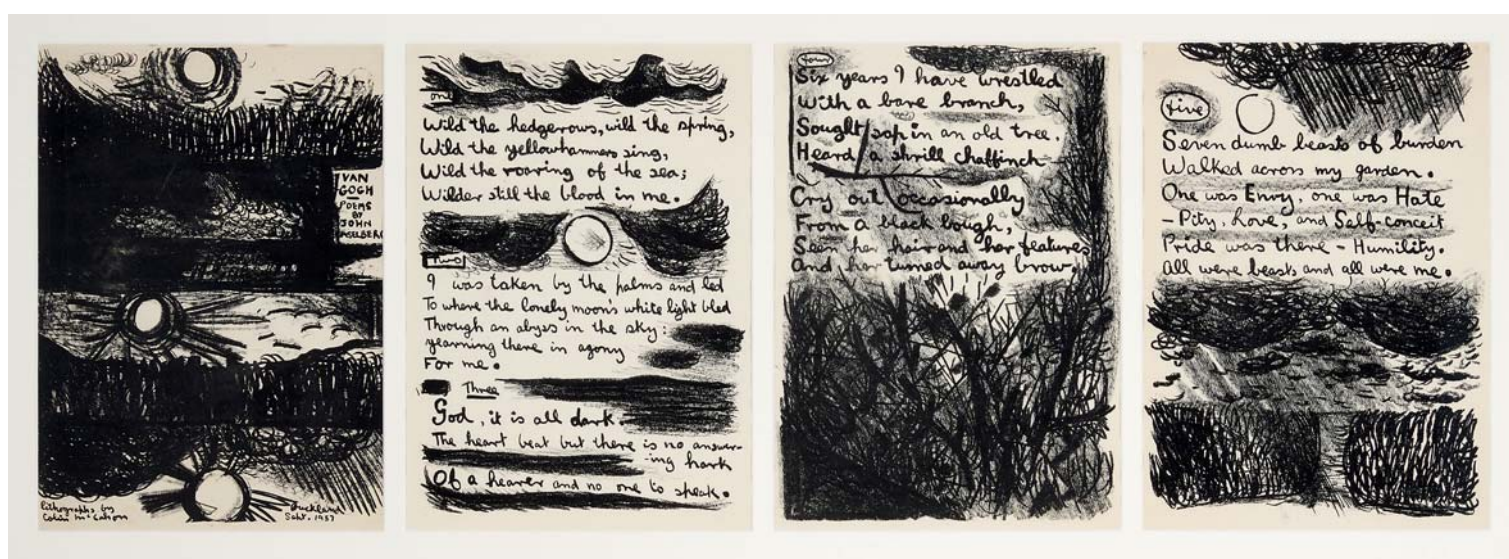 VAN
GOGH
POEMS
BY
JOHN
CASELBERG
Lithographs by
Colin McCahon
Auckland
Sept. 1957
one
Wild the hedgerows, wild the spring,
Wild the yellowhammers sing,
Wild the roaring of the sea;
Wilder still the blood in me.
Two
I was taken by the palms and led
To where the lonely moon's white light bled
Through an abyss in the sky:
yearning there in agony
For me.
Three
God, it is all dark.
The heart beat but there is no answer-
-ing hark
Of a hearer and no one to speak.
four
Six years I have wrestled
With a bare branch,
Sought sap in an old tree.
Heard a shrill chaffinch
Cry out occasionally
From a black bough,
Seen her hair and her features
And her turned away brow.
five
Seven dumb beasts of burden
Walked across my garden.
One was Envy, one was Hate
- Pity, Love, and Self-conceit
Pride was there - Humility.
All were beasts and all were me.